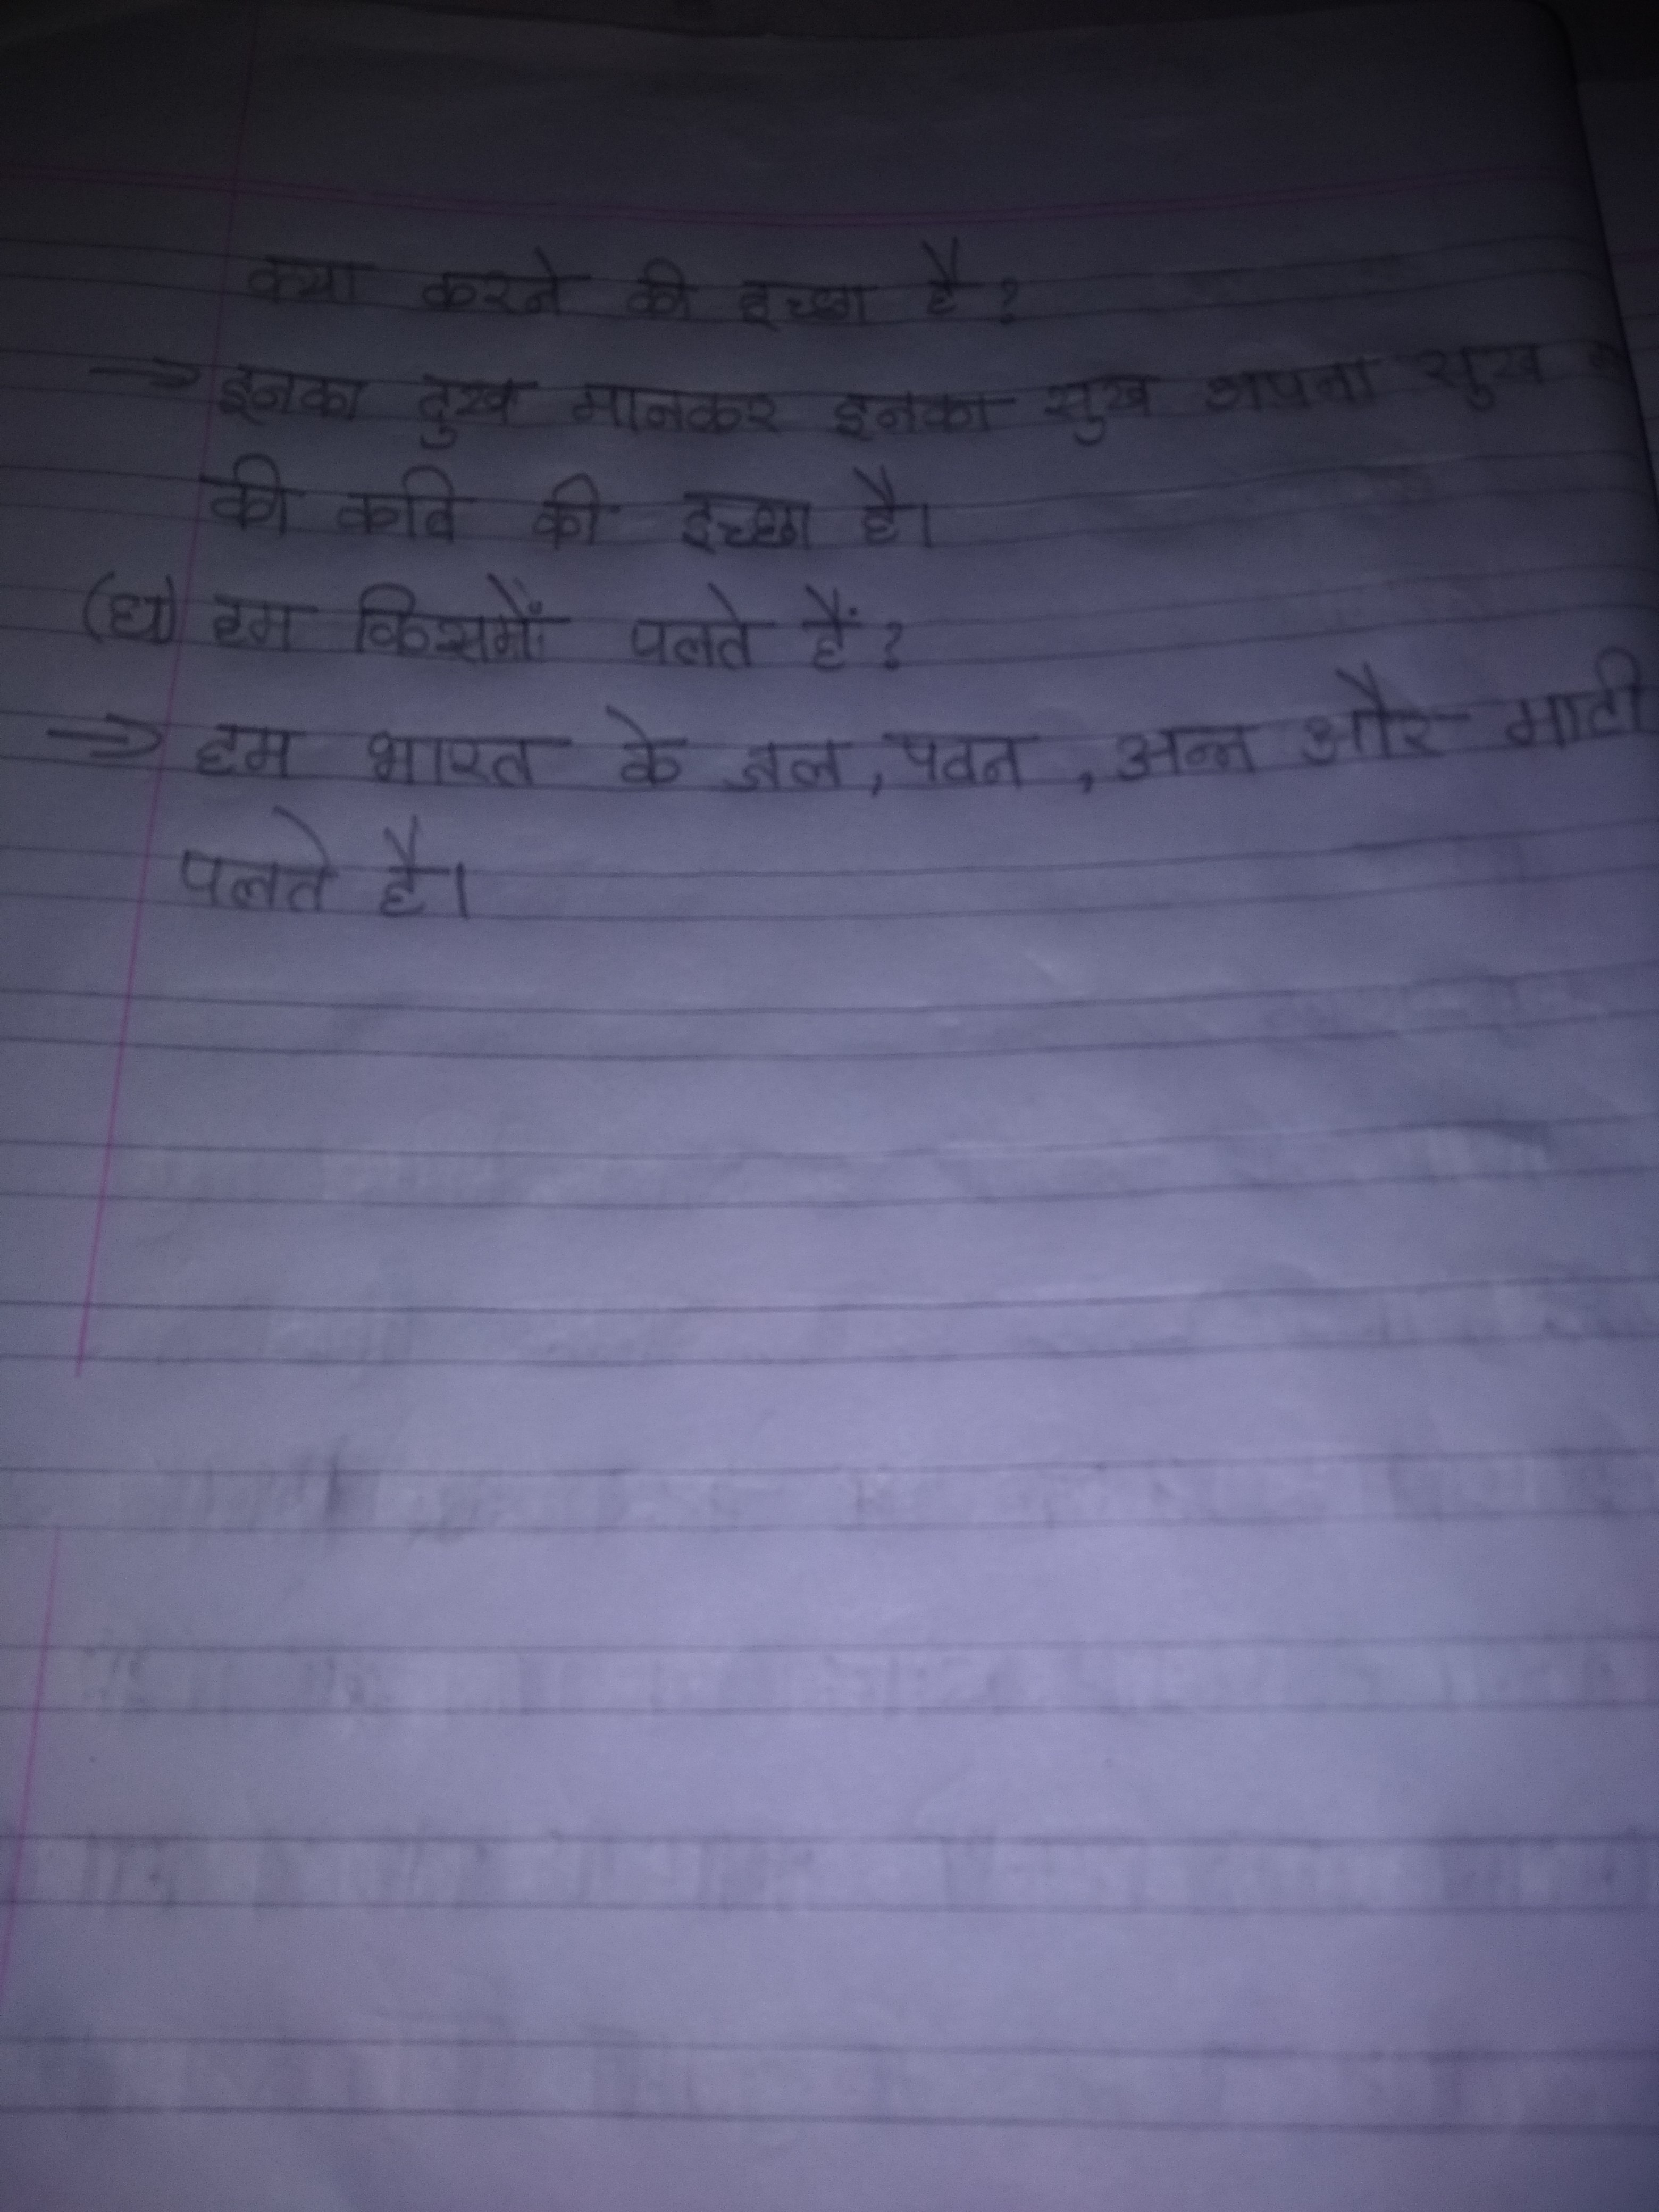 क्या करने की इच्छा है?
→ इनका दुख मानकर इनका सुख अपना सुख
की कवि की इच्छा है।
(घ) हम किसमें पलते हैं?
⇒ हम भारत के जल, पवन, अन्न और माटी
पलते है।